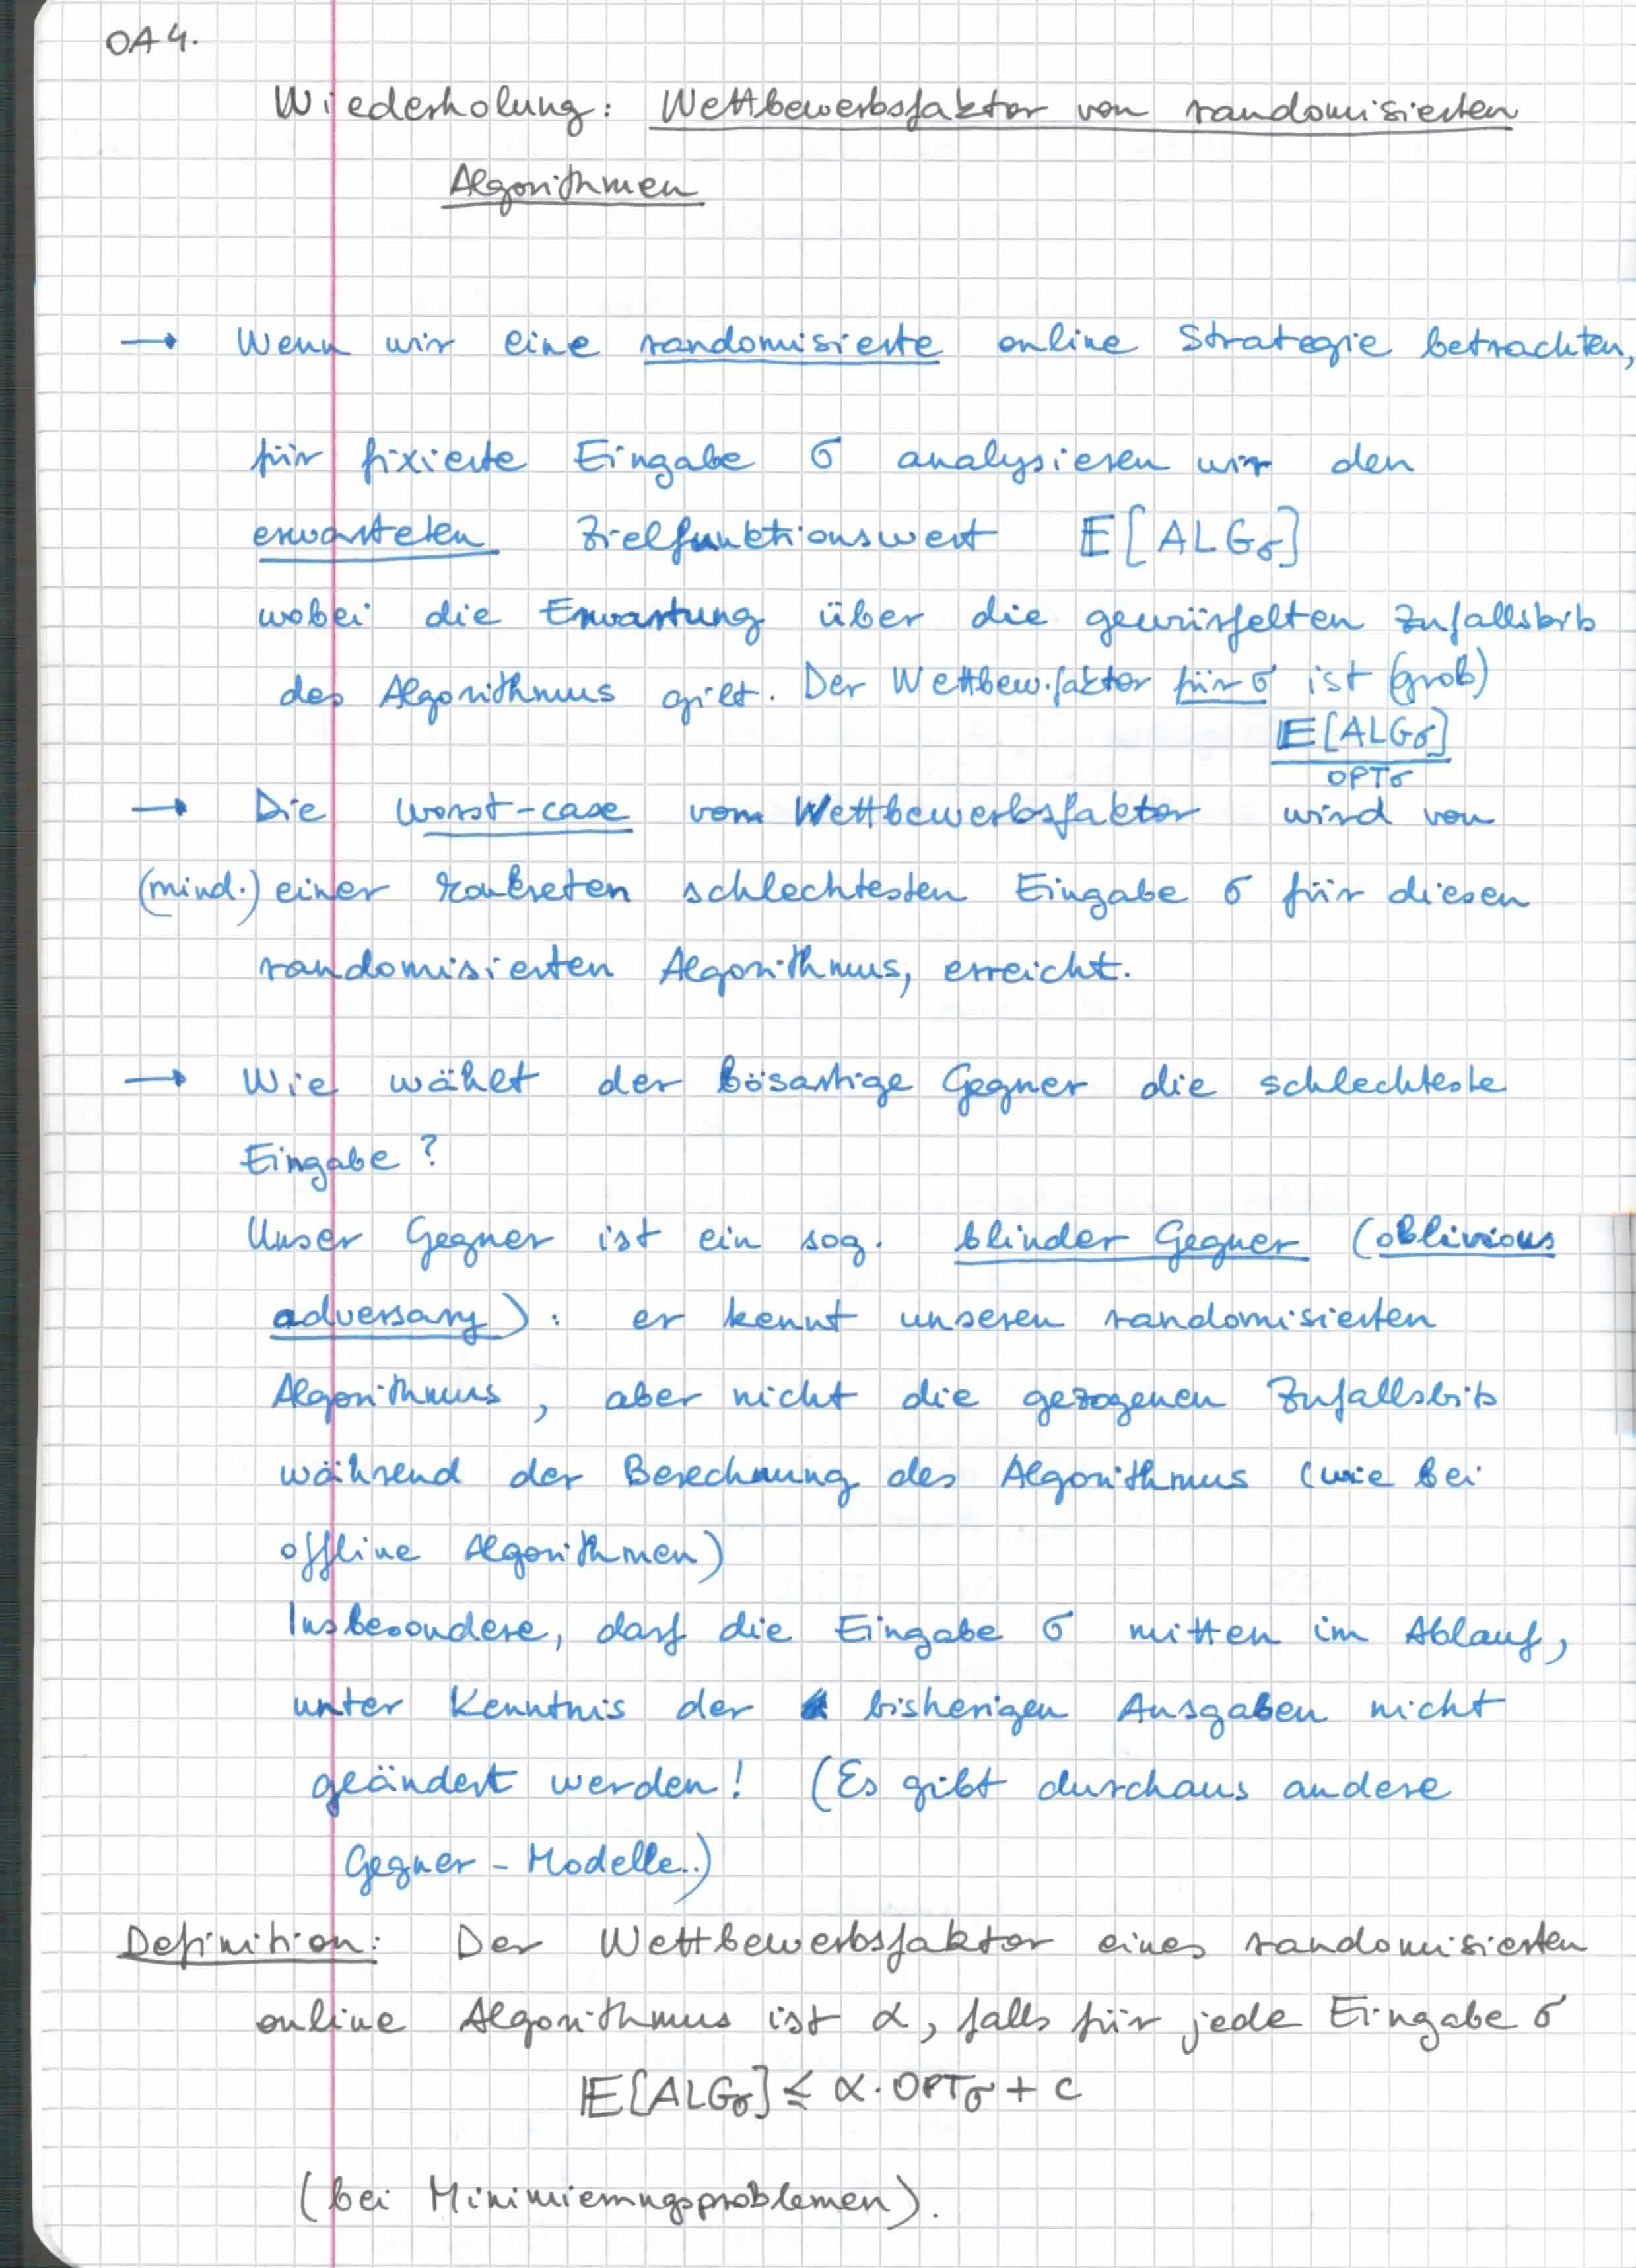 OA 4.
Wiederholung: Wettbewerbsfaktor von randomisierten
Algorithmen
→ Wenn wir eine randomisierte online Strategie betrachten,
für fixierte Eingabe σ analysieren wir den
erwarteten Zielfunktionswert E[ALGσ]
wobei die Erwartung über die gewürfelten Zufallsbits
des Algorithmus gilt. Der Wettbew.faktor für σ ist (grob)
E[ALGσ]
OPTσ
→ Die worst-case vom Wettbewerbsfaktor wird von
(mind.) einer konkreten schlechtesten Eingabe σ für diesen
randomisierten Algorithmus, erreicht.
→ Wie wählt der bösartige Gegner die schlechteste
Eingabe?
Unser Gegner ist ein sog. blinder Gegner (oblivious
adversary): er kennt unseren randomisierten
Algorithmus, aber nicht die gezogenen Zufallsbits
während der Berechnung des Algorithmus (wie bei
offline Algorithmen)
Insbesondere, darf die Eingabe σ mitten im Ablauf,
unter Kenntnis der bisherigen Ausgaben nicht
geändert werden! (Es gibt durchaus andere
Gegner-Modelle..)
Definition: Der Wettbewerbsfaktor eines randomisierten
online Algorithmus ist α, falls für jede Eingabe σ
E[ALGσ] ≤ α · OPTσ + c
(bei Minimierungsproblemen).